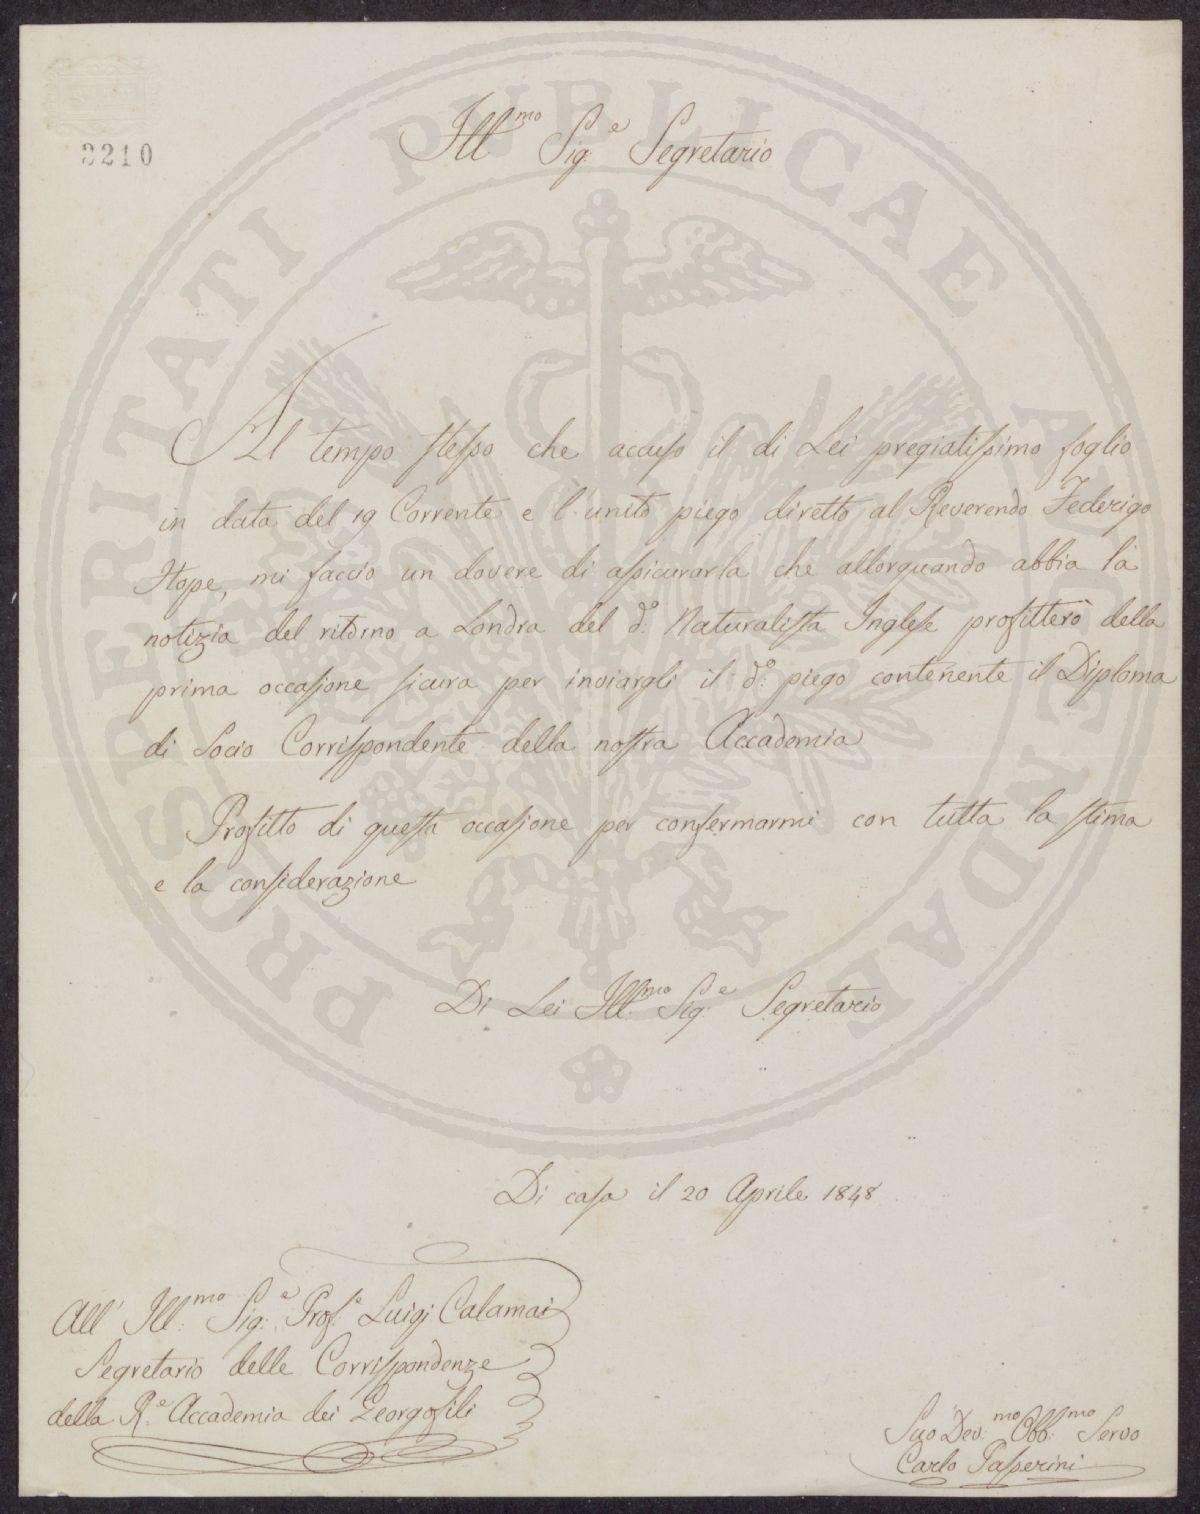 3210
Ill.mo Sig.e Segretario
Al tempo stesso che accuso il di Lei pregiatissimo foglio
in data del 19 Corrente e l'unito piego diretto al Reverendo Federigo
Hope, mi faccio un dovere di assicurarla che allorquando abbia la
notizia del ritorno a Londra del d.o Naturalista Inglese profitterò della
prima occasione sicura per inviargli il d.o piego contenente il Diploma
di Socio Corrispondente della nostra Accademia
Profitto di questa occasione per confermarmi con tutta la stima
e la considerazione
Di Lei Ill.mo Sig.e Segretario
Di casa il 20 Aprile 1848
All' Ill.mo Sig.e Prof.e Luigi Calamai
Segretario delle Corrispondenze
della R.e Accademia dei Georgofili
Suo Dev.mo Obb.mo Servo
Carlo Passerini
PROSPERITATI PUBLICAE AUGENDAE